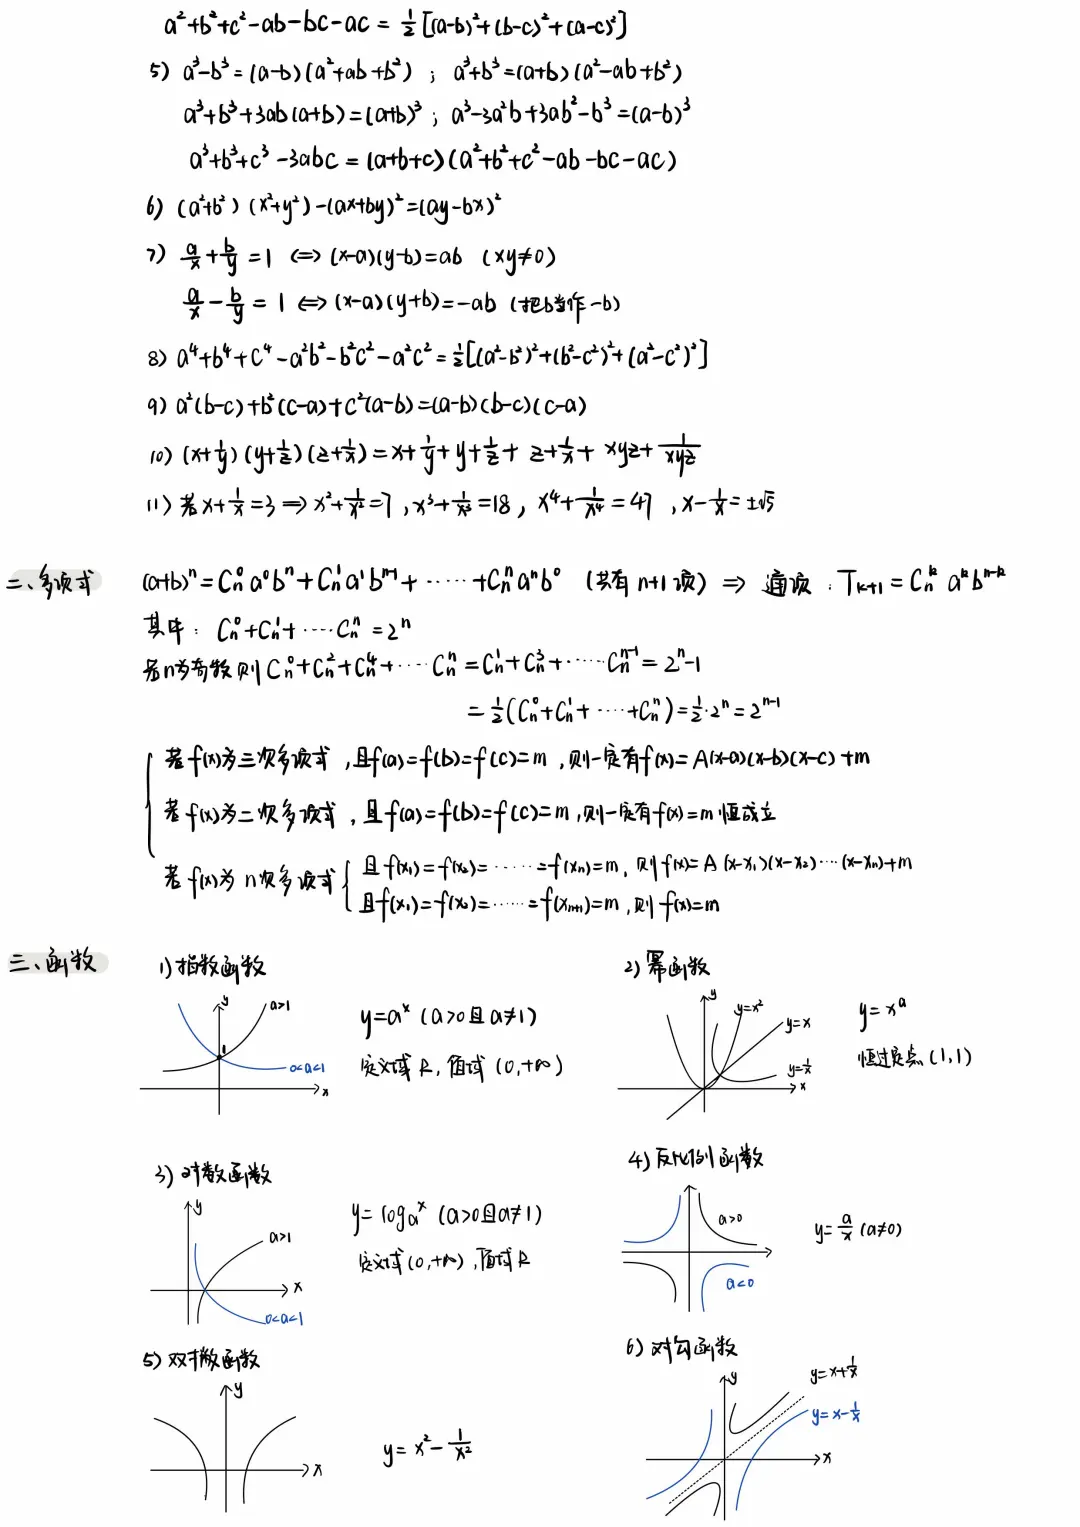 a²+b²+c²-ab-bc-ac = 1/2[(a-b)²+(b-c)²+(a-c)²]
5) a³-b³=(a-b)(a²+ab+b²) ; a³+b³=(a+b)(a²-ab+b²)
a³+b³+3ab(a+b)=(a+b)³ ; a³-3a²b+3ab²-b³=(a-b)³
a³+b³+c³-3abc = (a+b+c)(a²+b²+c²-ab-bc-ac)
6) (a²+b²)(x²+y²)-(ax+by)²=(ay-bx)²
7) a/x+b/y=1 ⇔ (x-a)(y-b)=ab (xy≠0)
a/x-b/y=1 ⇔ (x-a)(y+b)=-ab (把b当作-b)
8) a⁴+b⁴+c⁴-a²b²-b²c²-a²c²=1/2[(a²-b²)²+(b²-c²)²+(a²-c²)²]
9) a²(b-c)+b²(c-a)+c²(a-b)=(a-b)(b-c)(c-a)
10) (x+1/y)(y+1/z)(z+1/x)=x+1/y+y+1/z+z+1/x+xyz+1/xyz
11) 若x+1/x=3 ⇒ x²+1/x²=7, x³+1/x³=18, x⁴+1/x⁴=47, x-1/x=±√5
二、多项式 (a+b)ⁿ=Cₙ⁰a⁰bⁿ+Cₙ¹a¹bⁿ⁻¹+······+Cₙⁿaⁿb⁰ (共有n+1项) ⇒ 通项: Tₖ₊₁=Cₙᵏaᵏbⁿ⁻ᵏ
其中: Cₙ⁰+Cₙ¹+····Cₙⁿ=2ⁿ
若n为奇数则Cₙ⁰+Cₙ²+Cₙ⁴+····Cₙⁿ=Cₙ¹+Cₙ³+·····Cₙⁿ⁻¹=2ⁿ-1
=1/2(Cₙ⁰+Cₙ¹+····+Cₙⁿ)=1/2·2ⁿ=2ⁿ⁻¹
若f(x)为三次多项式,且f(a)=f(b)=f(c)=m,则一定有f(x)=A(x-a)(x-b)(x-c)+m
若f(x)为二次多项式,且f(a)=f(b)=f(c)=m,则一定有f(x)=m恒成立
若f(x)为n次多项式{且f(x₁)=f(x₂)=······=f(xₙ)=m,则f(x)=A(x-x₁)(x-x₂)····(x-xₙ)+m
且f(x₁)=f(x₂)=······=f(xₙ₊₁)=m,则f(x)=m
三、函数 1)指数函数
y
a>1
1
0<a<1
x
y=aˣ (a>0且a≠1)
定义域R,值域(0,+∞)
2)幂函数
y
y=x²
y=x
y=1/x
x
y=xᵃ
恒过定点(1,1)
3)对数函数
y
a>1
x
0<a<1
y=logₐˣ (a>0且a≠1)
定义域(0,+∞),值域R
4)反比例函数
a>0
a<0
y=a/x (a≠0)
5)双撇函数
y
x
y=x²-1/x²
6)对勾函数
y
y=x+1/x
y=x-1/x
x